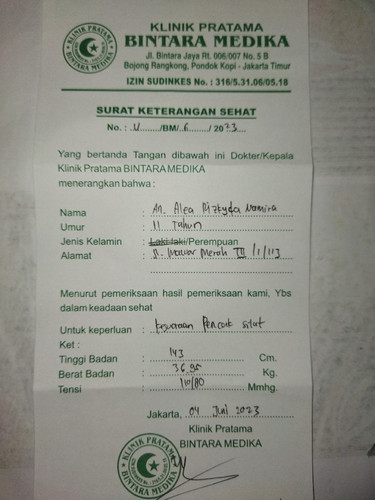 KLINIK PRATAMA
BINTARA MEDIKA
Jl. Bintara Jaya Rt. 006/007 No. 5 B
Bojong Rangkong, Pondok Kopi - Jakarta Timur
IZIN SUDINKES No. : 316/5.31.06/05.18
KLINIK PRATAMA
BINTARA MEDIKA
SURAT KETERANGAN SEHAT
No. : V /BM/ 6 / 2023
Yang bertanda Tangan dibawah ini Dokter/Kepala
Klinik Pratama BINTARA MEDIKA
menerangkan bahwa :
Nama : An. Alea Rizkyda Namira
Umur : 11 Tahun
Jenis Kelamin : Laki-laki/Perempuan
Alamat : Jl. Mawar Merah III /1/113
Menurut pemeriksaan hasil pemeriksaan kami, Ybs
dalam keadaan sehat
Untuk keperluan : kejuaraan Pencak silat
Ket :
Tinggi Badan : 143 Cm.
Berat Badan : 36,95 Kg.
Tensi : 110/80 Mmhg.
Jakarta, 04 Juni 2023
Klinik Pratama
BINTARA MEDIKA
KLINIK PRATAMA
BINTARA MEDIKA